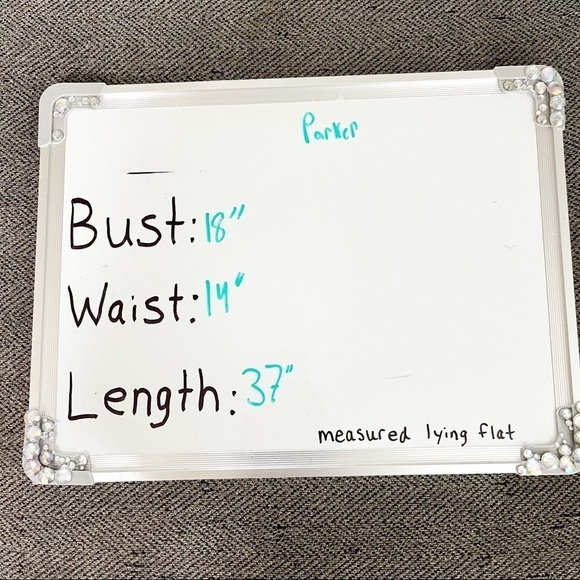 Parker
Bust: 18"
Waist: 14"
Length: 37"
measured lying flat